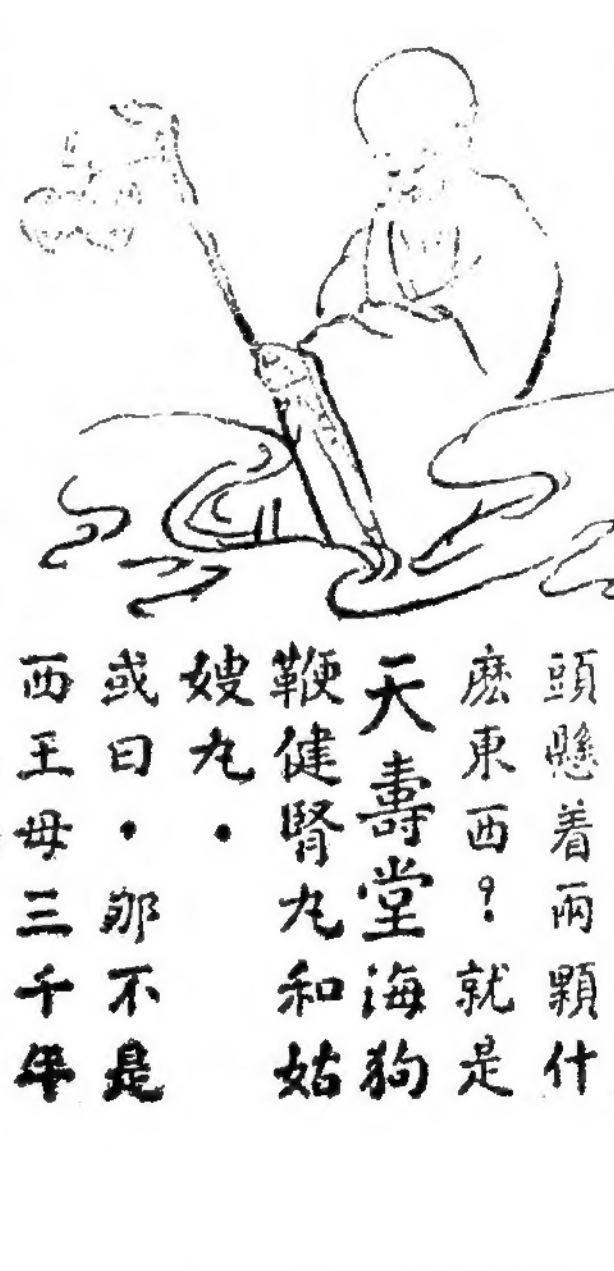 頭懸着兩顆什
麽東西？就是
天壽堂海狗
鞭健腎丸和姑
嫂丸・
或曰・那不是
西王母三千年